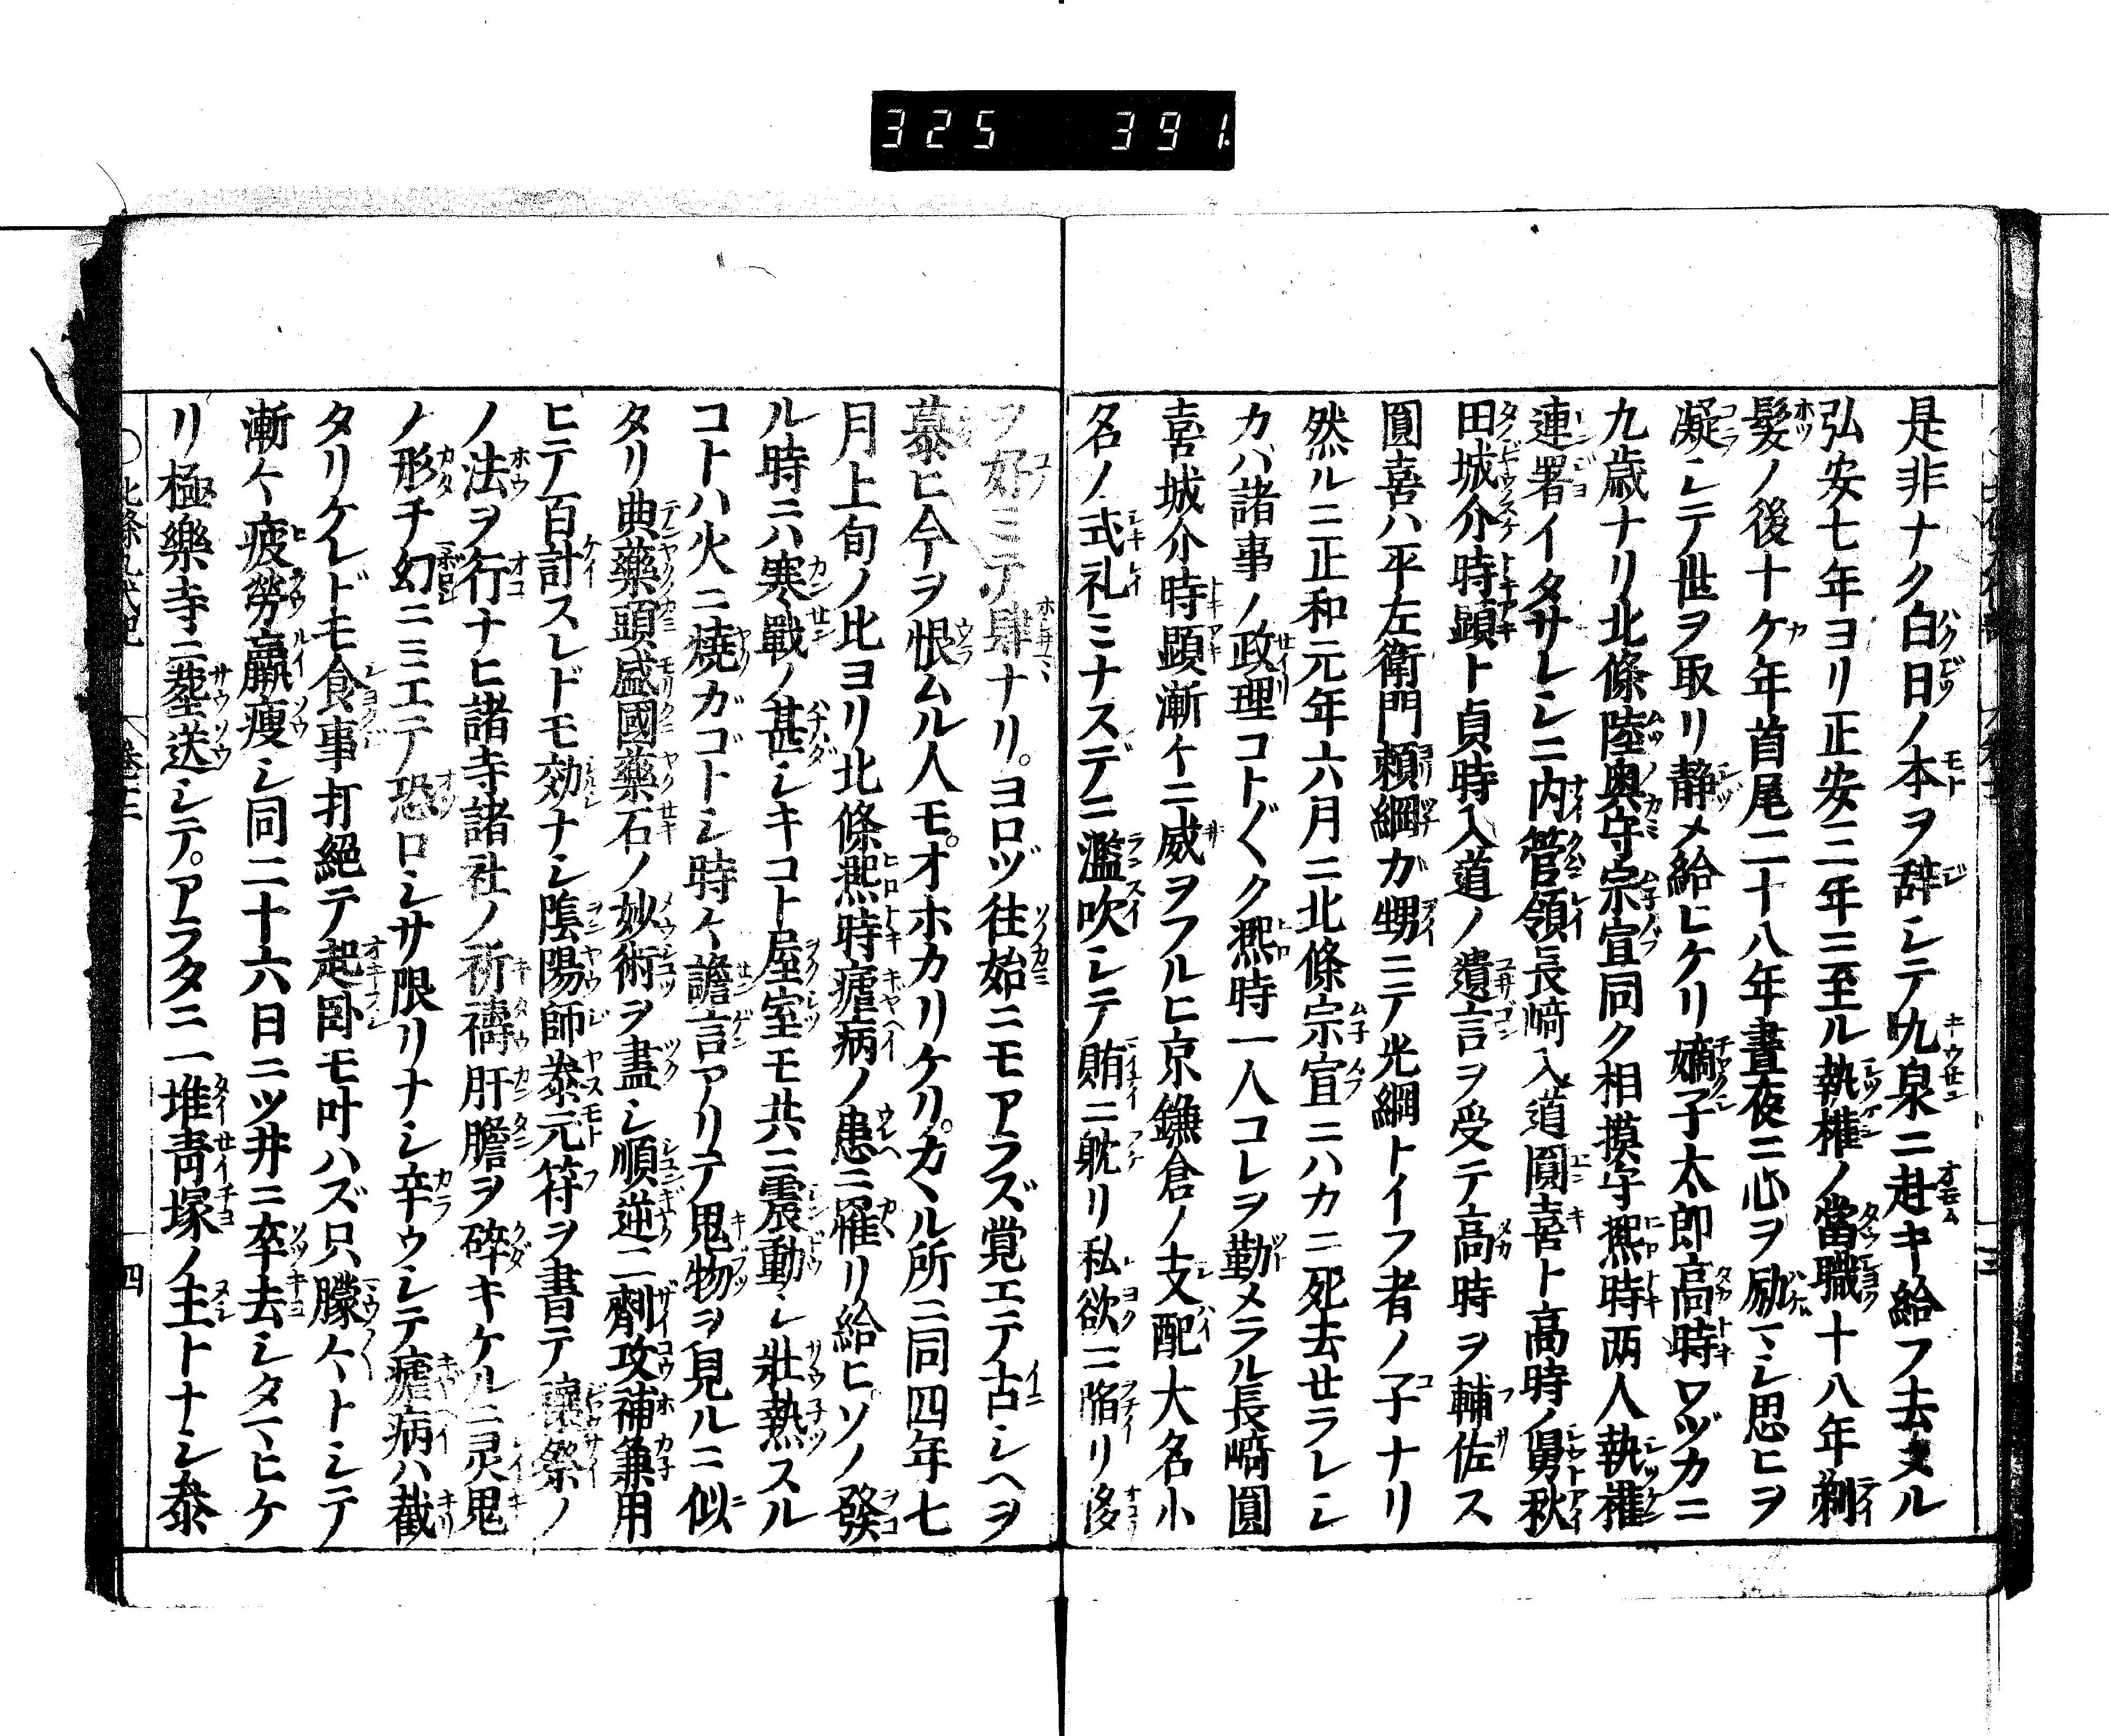 325 391
是非ナク白日ノ本ヲ辞シテ九泉ニ赴キ給フ去ヌル
弘安七年ヨリ正安三年ニ至ル執権ノ當職十八年剃
髪ノ後十ケ年首尾二十八年晝夜ニ心ヲ励マシ思ヒヲ
凝シテ世ヲ取リ静メ給ヒケリ嫡子太郎高時ワヅカニ
九歳ナリ北條陸奥守宗宣同ク相摸守凞時两人執権
連署イタサレシニ内管領長﨑入道圓喜ト高時ノ舅秋
田城介時顕ト貞時入道ノ遺言ヲ受テ高時ヲ輔佐ス
圓喜ハ平左衛門頼綱ガ甥ニテ光綱トイフ者ノ子ナリ
然ルニ正和元年六月ニ北條宗宣ニハカニ死去せラレシ
カバ諸事ノ政理コト〲ク凞時一人コレヲ勤メラル長﨑圓
喜城介時顕漸々ニ威ヲフルヒ京鎌倉ノ支配大名小
名ノ式礼ミナスデニ濫吹シテ賄ニ耽リ私欲ニ陥リ侈
ヲ好ミテ肆ナリ。ヨロヅ往始ニモアラズ覚エテ古シヘヲ
慕ヒ今ヲ恨ムル人モ。オホカリケリ。カヽル所ニ同四年七
月上旬ノ比ヨリ北條凞時瘧病ノ患ニ罹リ給ヒソノ發
ル時ニハ寒戰ノ甚シキコト屋室モ共ニ震動シ壯熱スル
コトハ火ニ燒ガゴトシ時々譫言アリテ鬼物ヲ見ルニ似
タリ典藥頭盛國藥石ノ妙術ヲ盡シ順逆二劑攻補兼用
ヒテ百計スレドモ効ナシ陰陽師泰元符ヲ書テ禳祭ノ
ノ法ヲ行ナヒ諸寺諸社ノ祈禱肝膽ヲ碎キケルニ灵鬼
ノ形チ幻ニミエテ恐ロシサ限リナシ辛ウシテ瘧病ハ截
タリケレドモ食事打絕テ起卧モ叶ハズ只朦々トシテ
漸々疲勞羸瘦シ同二十六日ニツ井ニ卒去シタマヒケ
リ極樂寺ニ葬送シテ。アラタニ一堆青塚ノ主トナシ泰
北條九代記 巻十二 四